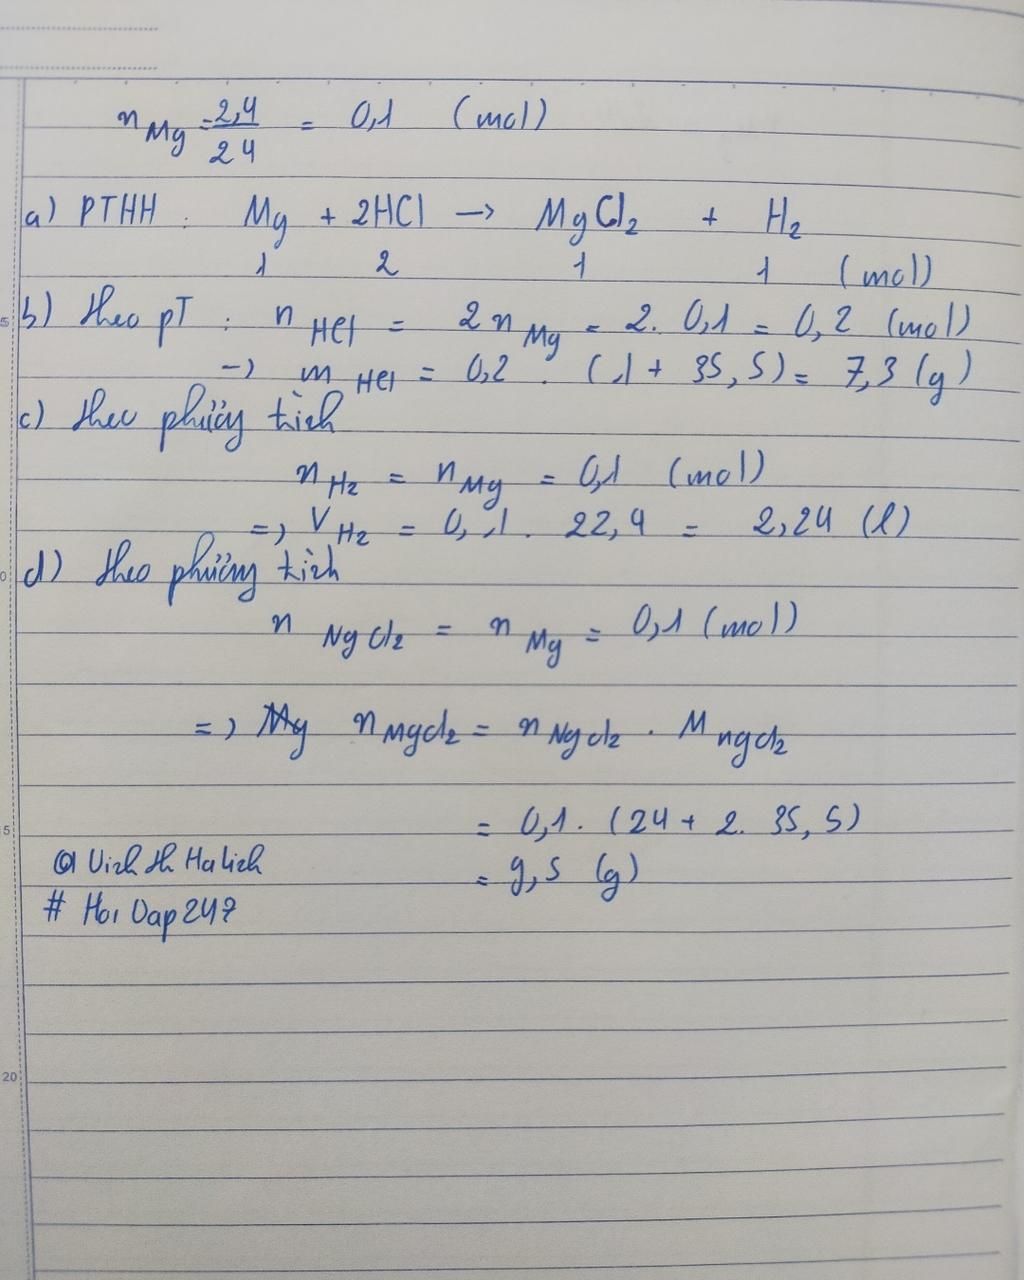 n Mg = 2,4/24 = 0,1 (mol)
a) PTHH : Mg + 2HCl → MgCl2 + H2
1 2 1 1 (mol)
b) theo pT : n HCl = 2 n Mg = 2. 0,1 = 0,2 (mol)
→ m HCl = 0,2 . (1 + 35,5) = 7,3 (g)
c) theo phương trình
n H2 = n Mg = 0,1 (mol)
=> V H2 = 0,1. 22,4 = 2,24 (l)
d) theo phương trình
n NgCl2 = n Mg = 0,1 (mol)
=> n MgCl2 = n NgCl2 . M ngCl2
= 0,1. (24 + 2. 35,5)
= 9,5 (g)
@
# Hoi Dap 247
5
0
5
20